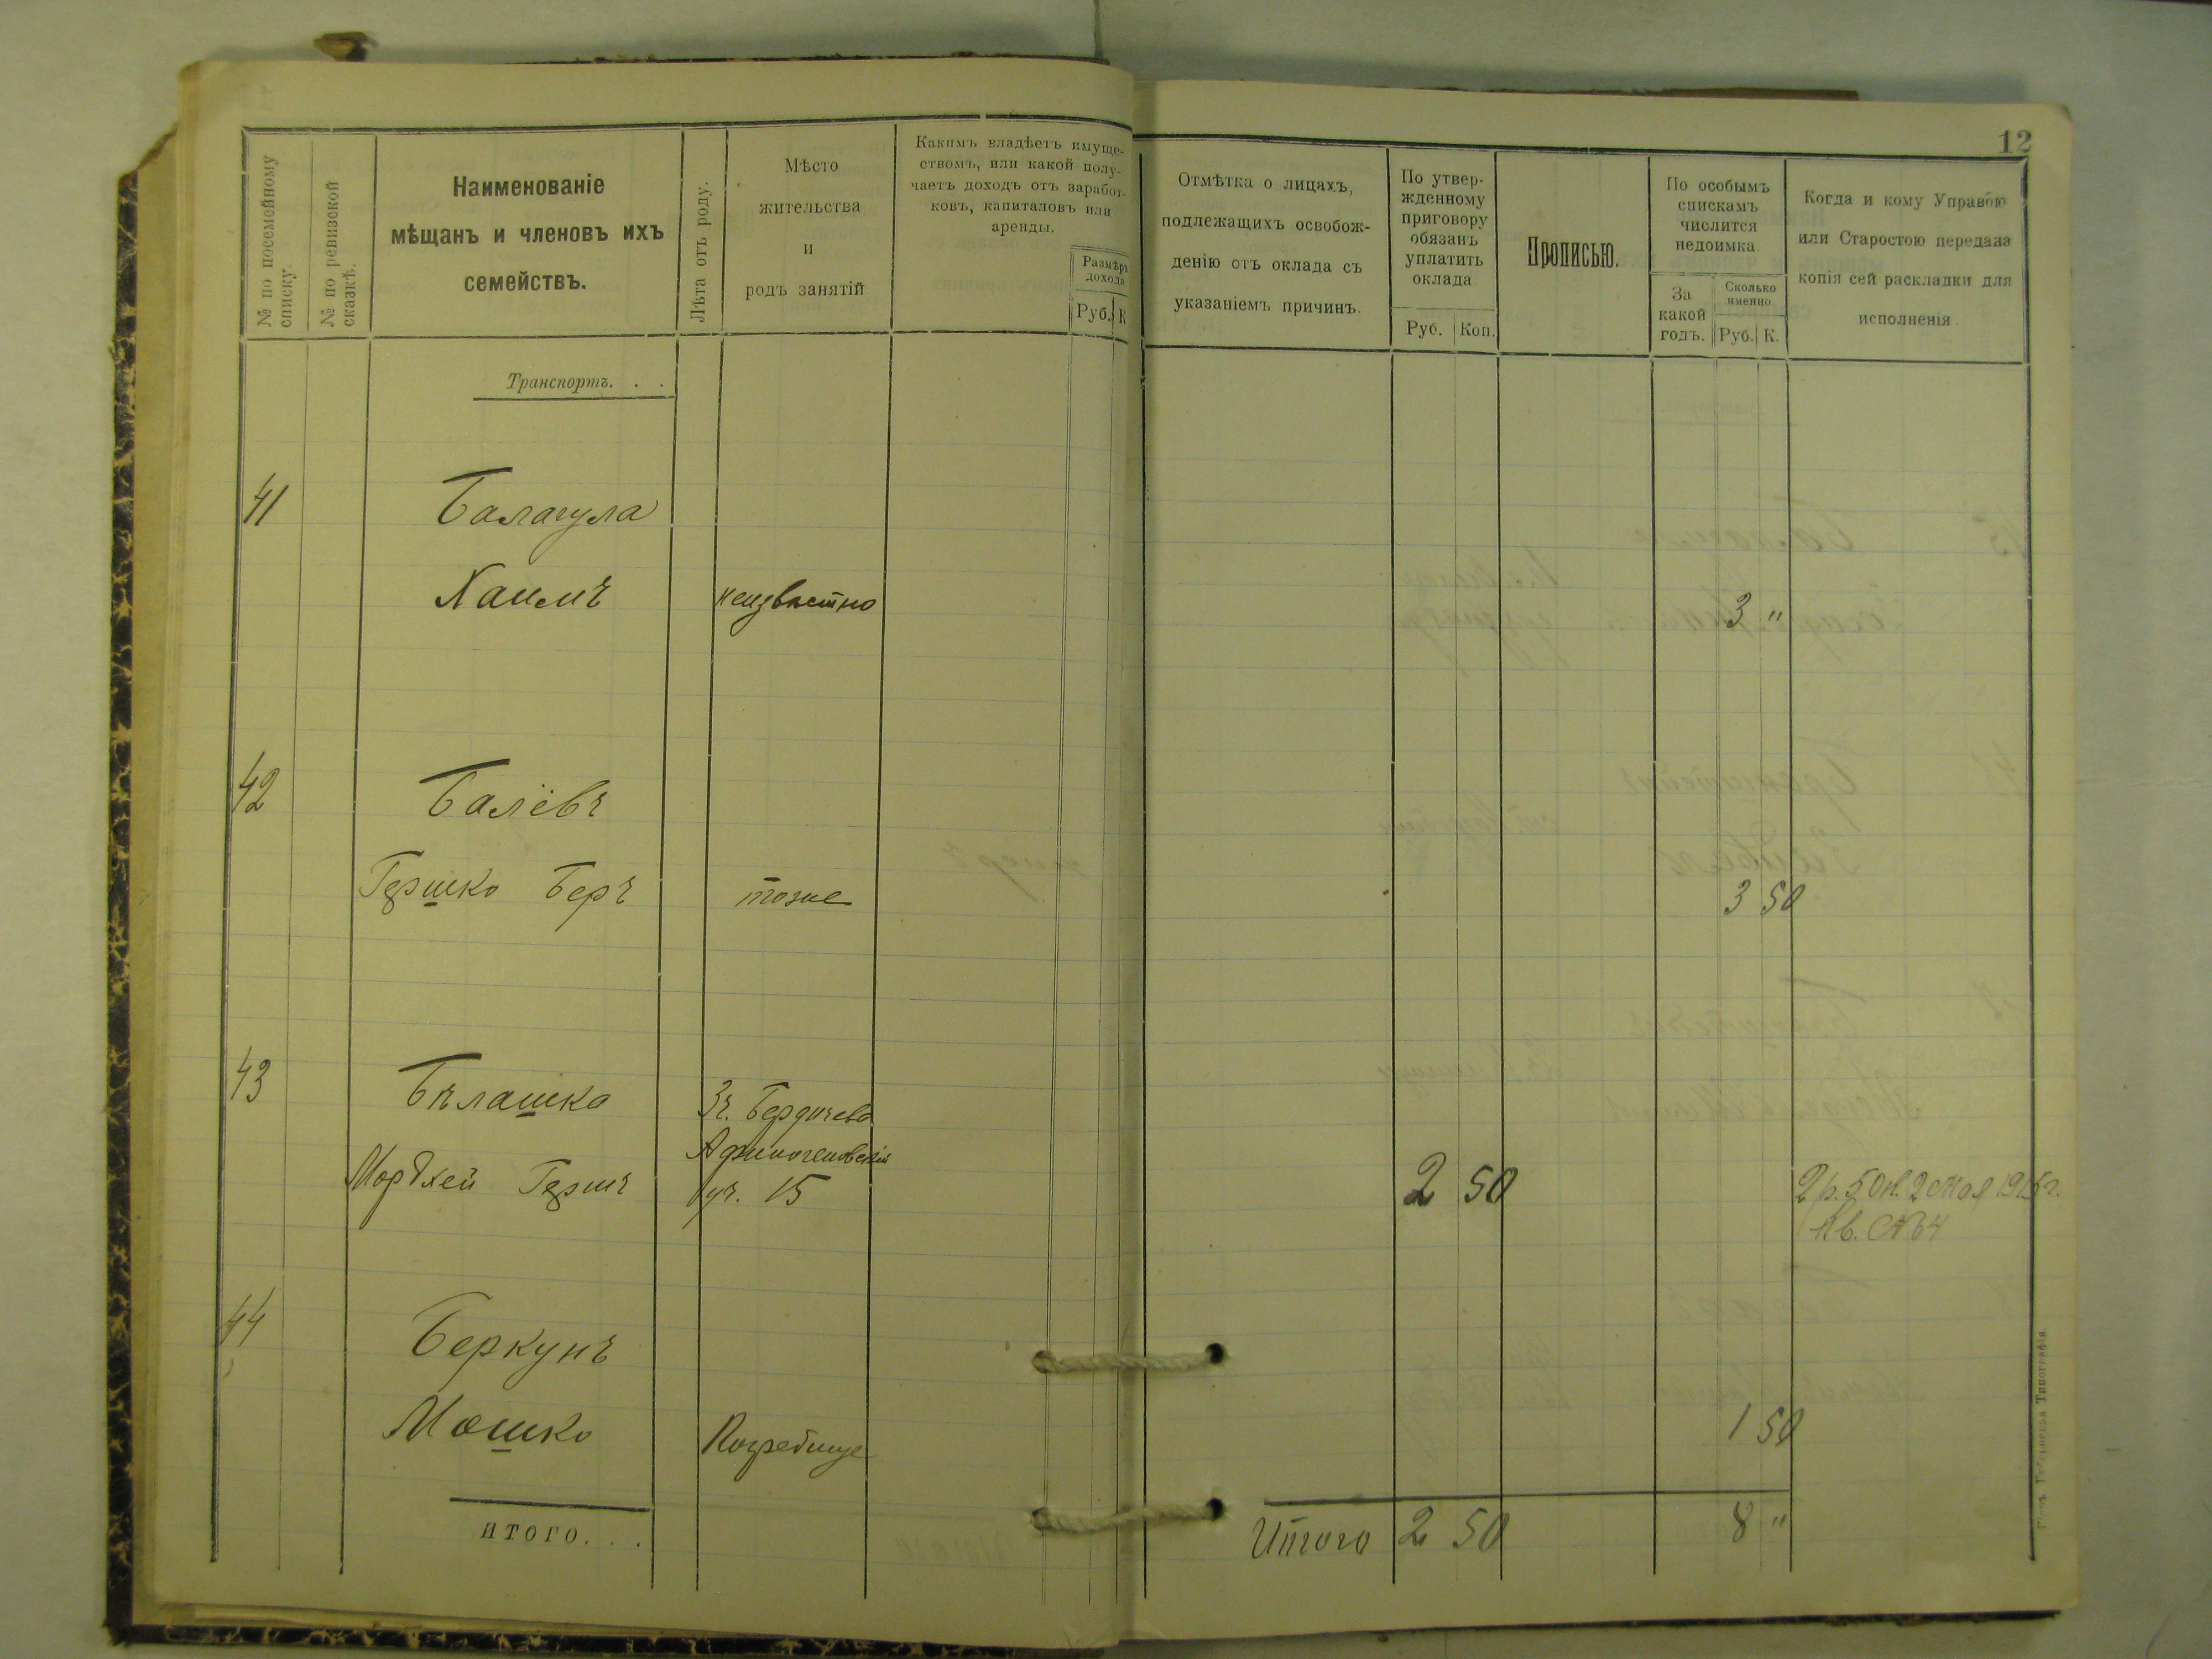 12
№ по посемейному списку.
№ по ревизской сказкѣ.
Наименованіе
мѣщанъ и членовъ ихъ
семействъ.
Лѣта отъ роду.
Мѣсто
жительства
и
родъ занятій
Какимъ владѣетъ имуще-
ствомъ, или какой полу-
чаетъ доходъ отъ заработ-
ковъ, капиталовъ или
аренды.
Размѣръ
дохода
Руб. К
Отмѣтка о лицахъ,
подлежащихъ освобож-
денію отъ оклада съ
указаніемъ причинъ.
По утвер-
жденному
приговору
обязанъ
уплатить
оклада
Руб. Коп.
Прописью.
По особымъ
спискамъ
числится
недоимка
За
какой
годъ.
Сколько
именно
Руб. К.
Когда и кому Управою
или Старостою передана
копія сей раскладки для
исполненія
Транспортъ. . .
41 Балагула
Хаимъ неизвѣстно 3 "
42 Балёвъ
Гершко Беръ тоже 3 50
43 Бѣлашко Зъ. Бердичева
Мордхей Гершъ уч. 15 2 50 2 р. 50 к. 2 мая 1915 г.
Кв. № 64
44 Беркунъ
Мошко Погребище 1 50
итого. . .
Итого 2 50 8 "